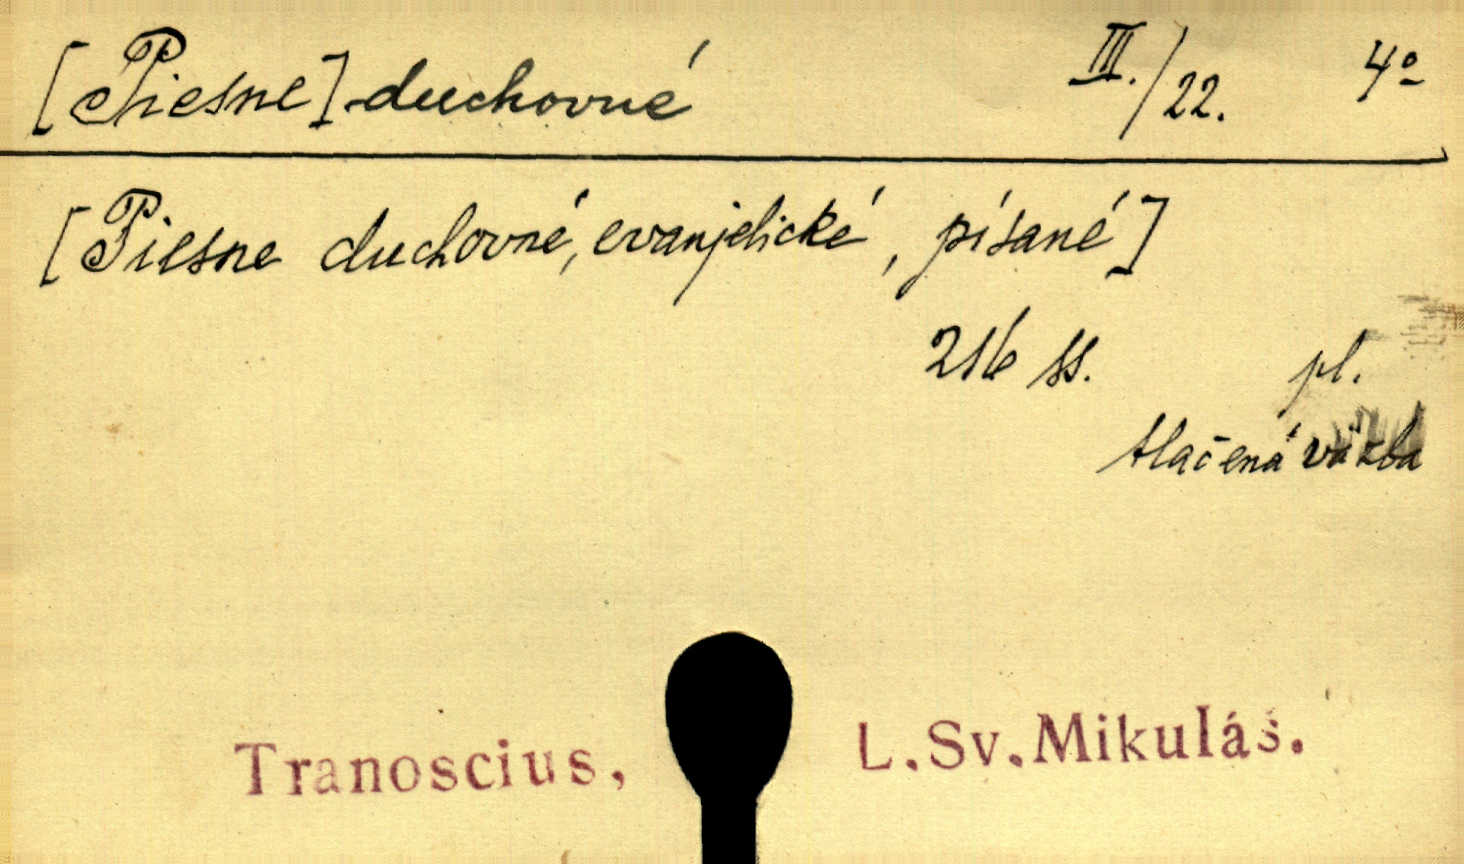 [Piesne] duchovné III./22. 4º
[Piesne duchovné, evanjelické, písané]
216 ss. pl.
tlačená väzba
Tranoscius, L.Sv.Mikuláš.